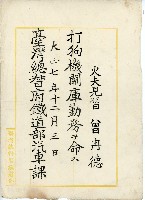 火夫見習 曾再德
打狗機關庫勤務ヲ命ス
大正七年十二月三日
臺灣總督府鐵道部汽車課